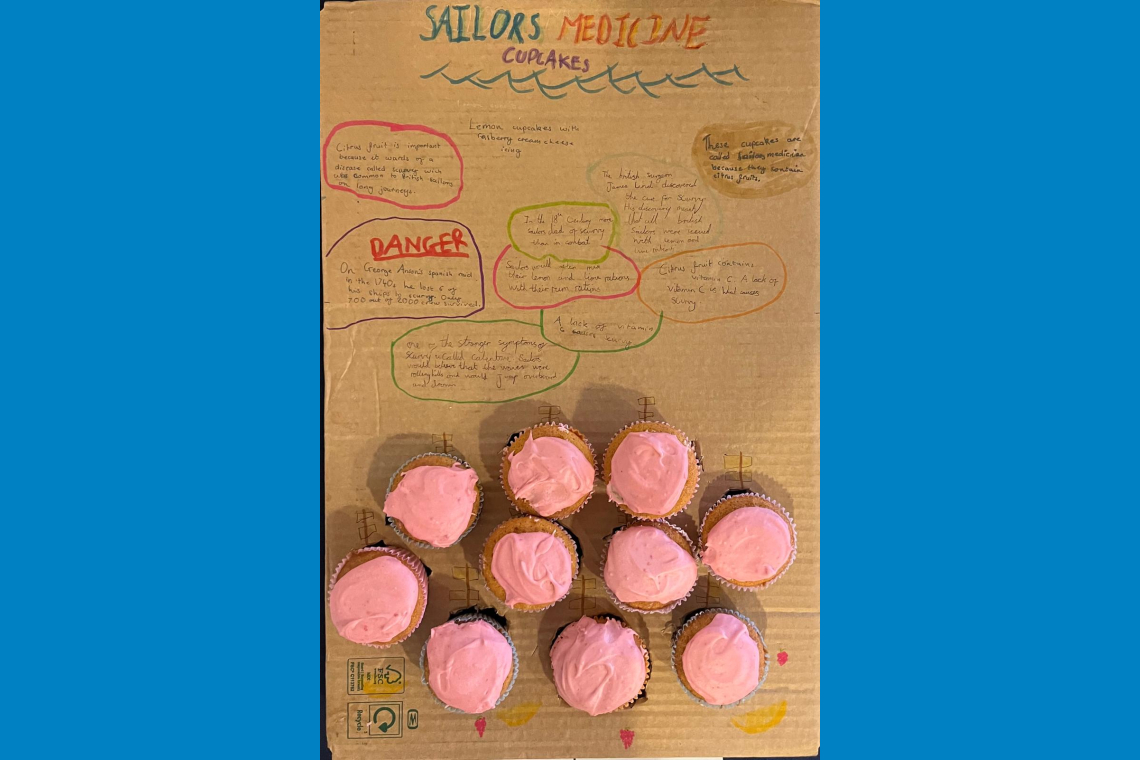 SAILORS MEDICINE
CUPCAKES
Lemon cupcakes with
rasberry cream cheese
icing
Citrus fruit is important
because it wards of a
disease called scurvy wich
was common to British sailors
on long journeys.
These cupcakes are
called sailors medicine
because they contain
citrus fruits.
The british surgeon
James Lind discovered
the cure for scurvy.
His discovery meant
that all british
Sailors were issued
with lemon and
lime rations
In the 18th Century more
sailors died of scurvy
than in combat
DANGER
On George Anson's Spanish raid
in the 1740s he lost 5 of
his ships to scurvy. Only
200 out of 2000 crew survived.
Sailors would often mix
their lemon and lime rations
with their rum rations
Citrus fruit contains
vitamin C. A lack of
vitamin C is what causes
Scurvy
A lack of vitamin
one of the stranger symptoms of
Scurvy is called calenture. Sailors
would believe that the waves were
rolling hills and would jump overboard
and drown
FSC
Recycle